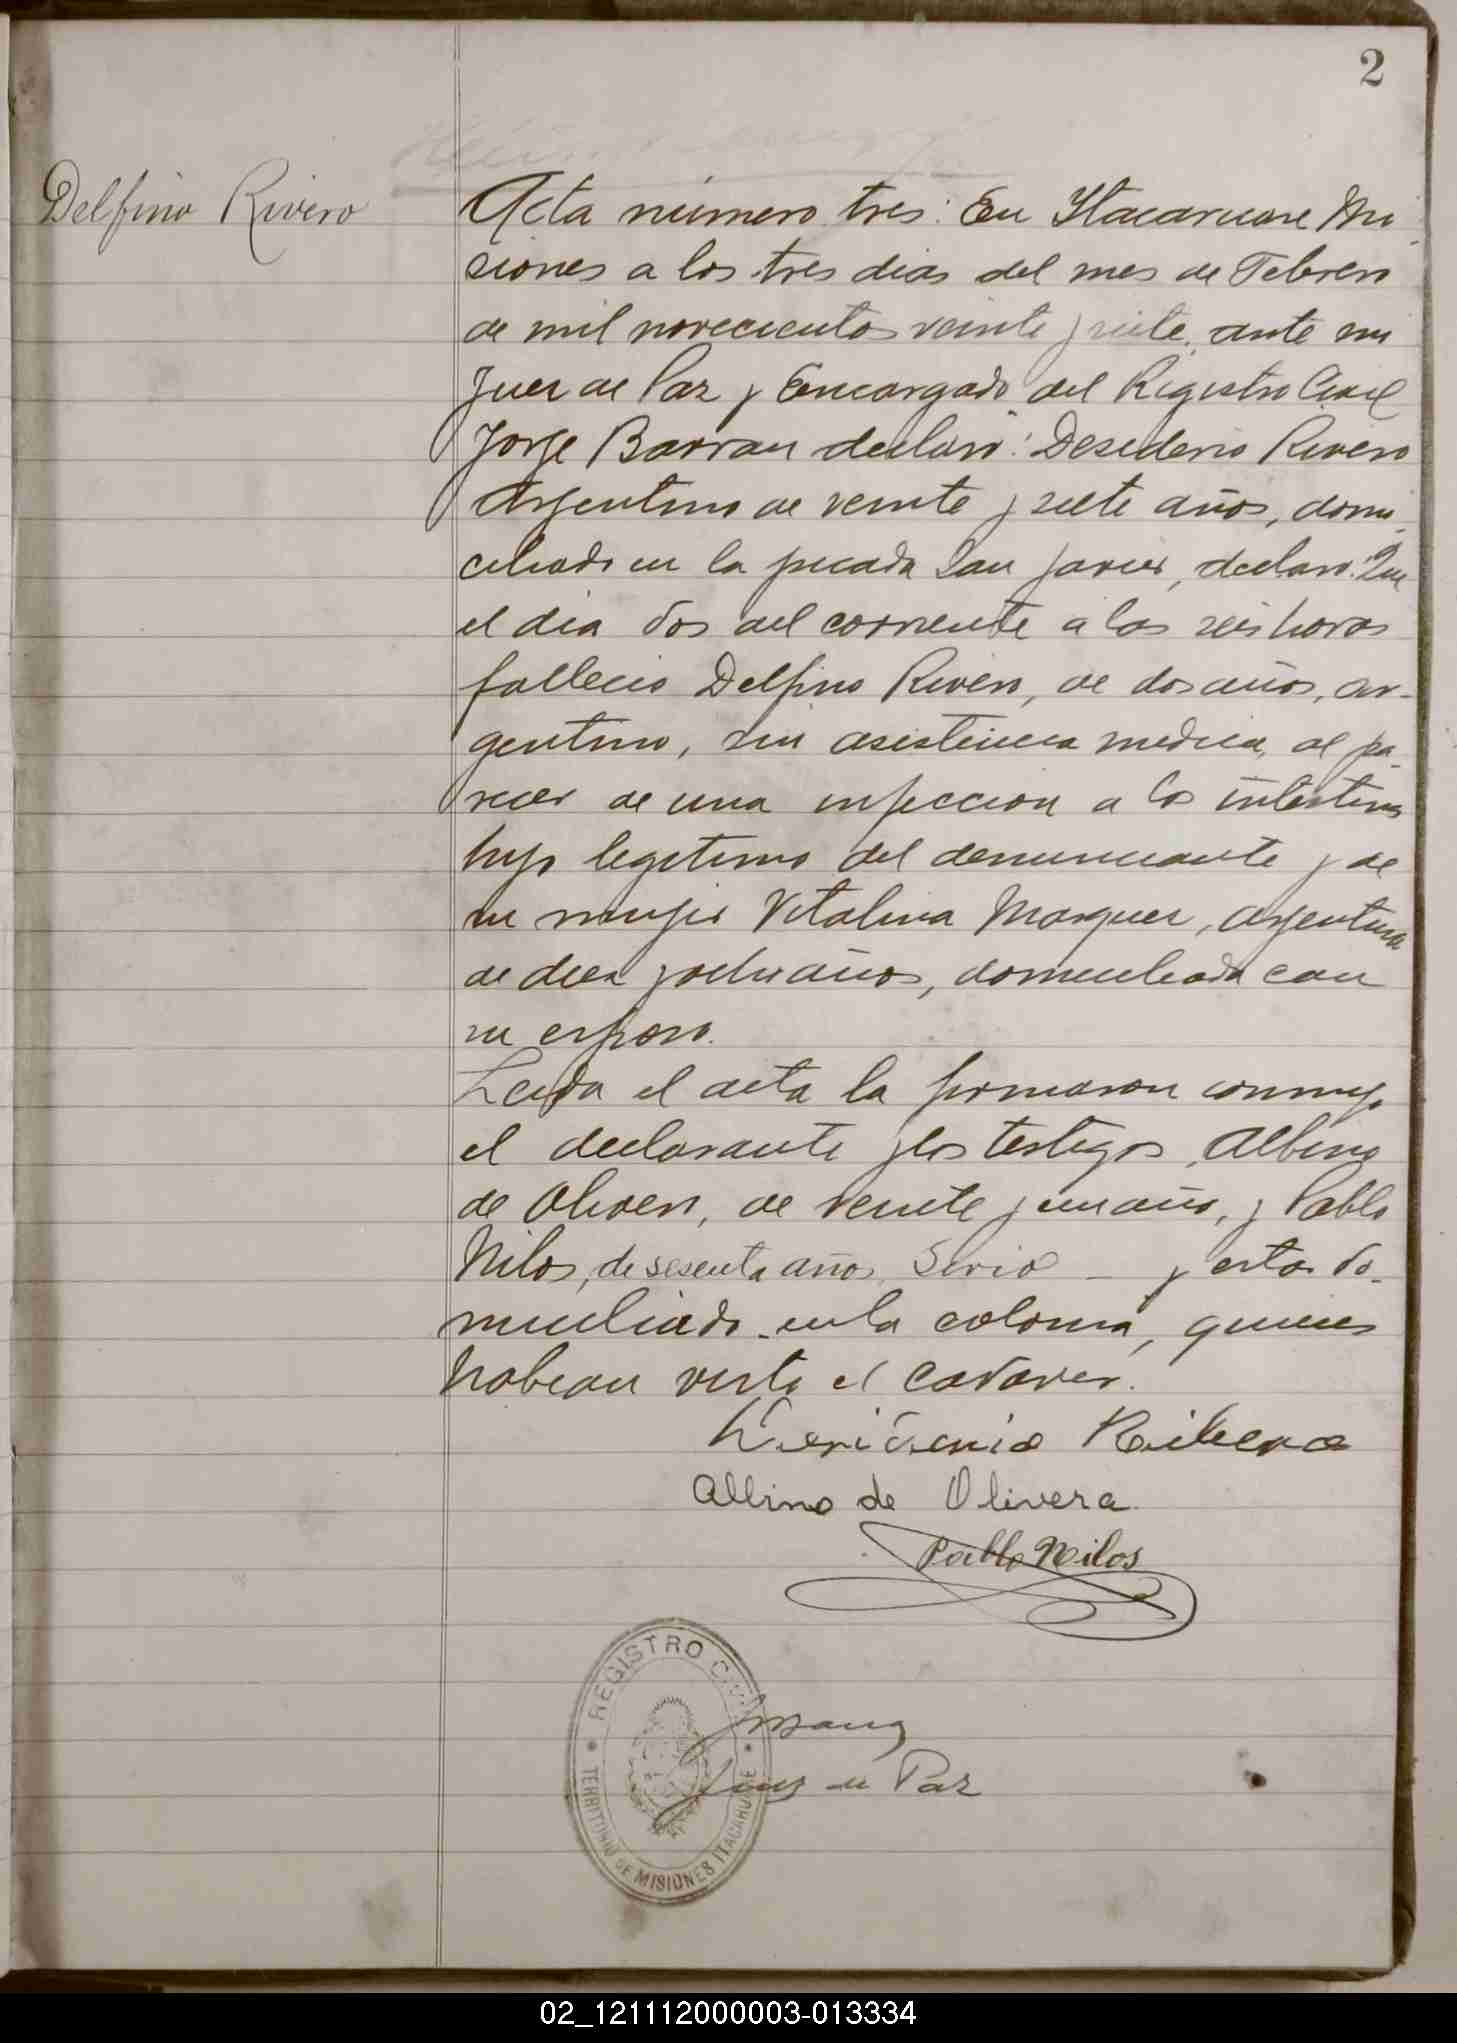 2
Delfino Rivero
Acta número tres: En Itacaruare Mi-
siones a los tres dias del mes de Febrero
de mil novecientos veinte y siete, ante mi
Juez de Paz y Encargado del Registro Civil
Jorge Barran declaró: Desiderio Rivero
Argentino de veinte y siete años, domi-
ciliado en la picada San Javier, declaro: Que
el dia dos del corriente a las seis horas
fallecio Delfino Rivero, de dos años, ar-
gentino, sin asistencia medica, al pa-
recer de una infeccion a los intestinos
hijo legitimo del denunciante y de
su mujer Vitalina Marquez, argentina
de diez y ocho años, domiciliada con
su esposo.
Leida el acta la firmaron conmigo
el declarante y los testigos, Albino
de Olivera, de veinte y un año, y Pablo
Nilos, de sesenta años, Servio - y estos do-
miciliado en la colonia, quienes
habian visto el cadaver.
Ribero
Albino de Olivera
Pablo Nilos
REGISTRO CIVIL
TERRITORIO DE MISIONES ITACARUARE
Juez de Paz
02_121112000003-013334